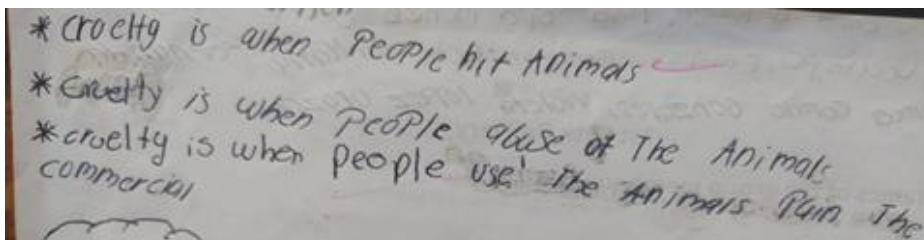 * cruelty is when People hit Animals
* Cruelty is when People abuse of The Animals
* cruelty is when people use the Animals Pain The
commercial